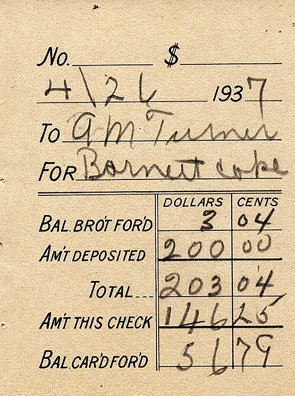 No. $
4\26 1937
To A M Turner
For Barnett cope
DOLLARS CENTS
BAL. BRO'T FOR'D 3 04
AM'T DEPOSITED 200 00
TOTAL 203 04
AM'T THIS CHECK 146 25
BAL. CAR'D FOR'D 56 79